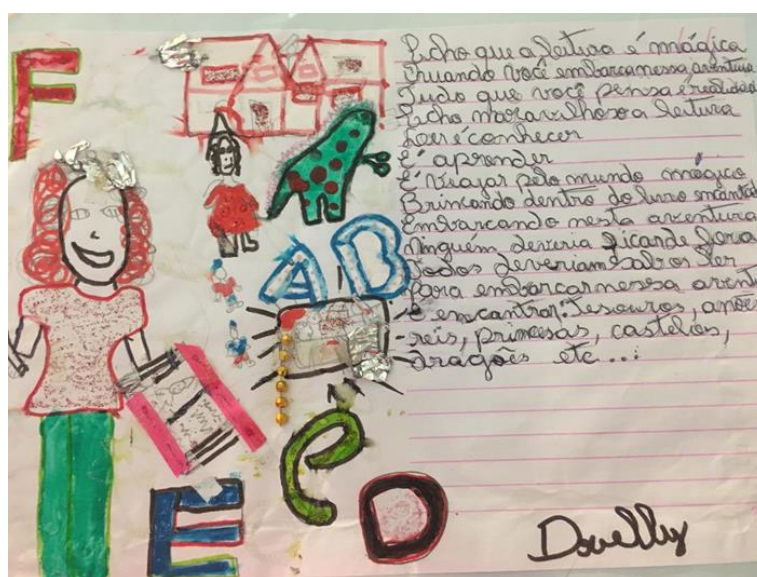 F
A B
C
E
D
Acho que a leitura é mágica
Quando você embarca nessa aventura
Tudo que você pensa é realidad
Acho maravilhosa a leitura
Ler é conhecer
É aprender
É viajar pelo mundo mágico
Brincando dentro do livro encantad
Embarcando nesta aventura
Ninguém deveria ficar de fora
Todos deveriam saber ler
Para embarcar nessa avent
e encantrar: Tesouros, anões
reis, princesas, castelos,
dragões etc...